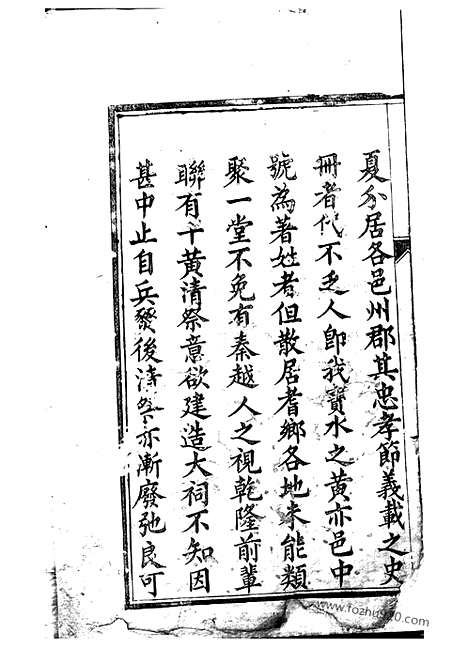 夏分居各邑州郡其忠孝節義載之史
冊者代不乏人即我寶水之黃亦邑中
號為著姓者但散居耆鄉各地未能類
聚一堂不免有秦越人之視乾隆前輩
聯有干黃清祭意欲建造大祠不知因
甚中止自兵燹後清祭亦漸廢弛良可
www.fozhu920.com